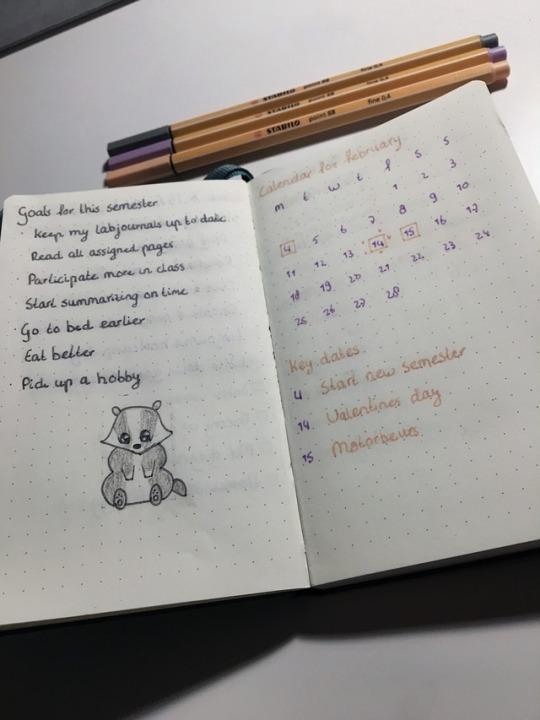 STABILO point 88 fine 0.4
STABILO point 88 fine 0.4
STABILO point 88 fine 0.4
Goals for this semester
Keep my labjournals up to date
Read all assigned pages
Participate more in class
Start summarizing on time
Go to bed earlier
Eat better
Pick up a hobby
Calendar for February
m t w t f s s
1 2 3
4 5 6 7 8 9 10
11 12 13 14 15 16 17
18 19 20 21 22 23 24
25 26 27 28
Key dates
4. Start new semester
14. Valentines day
15. Motorbeurs